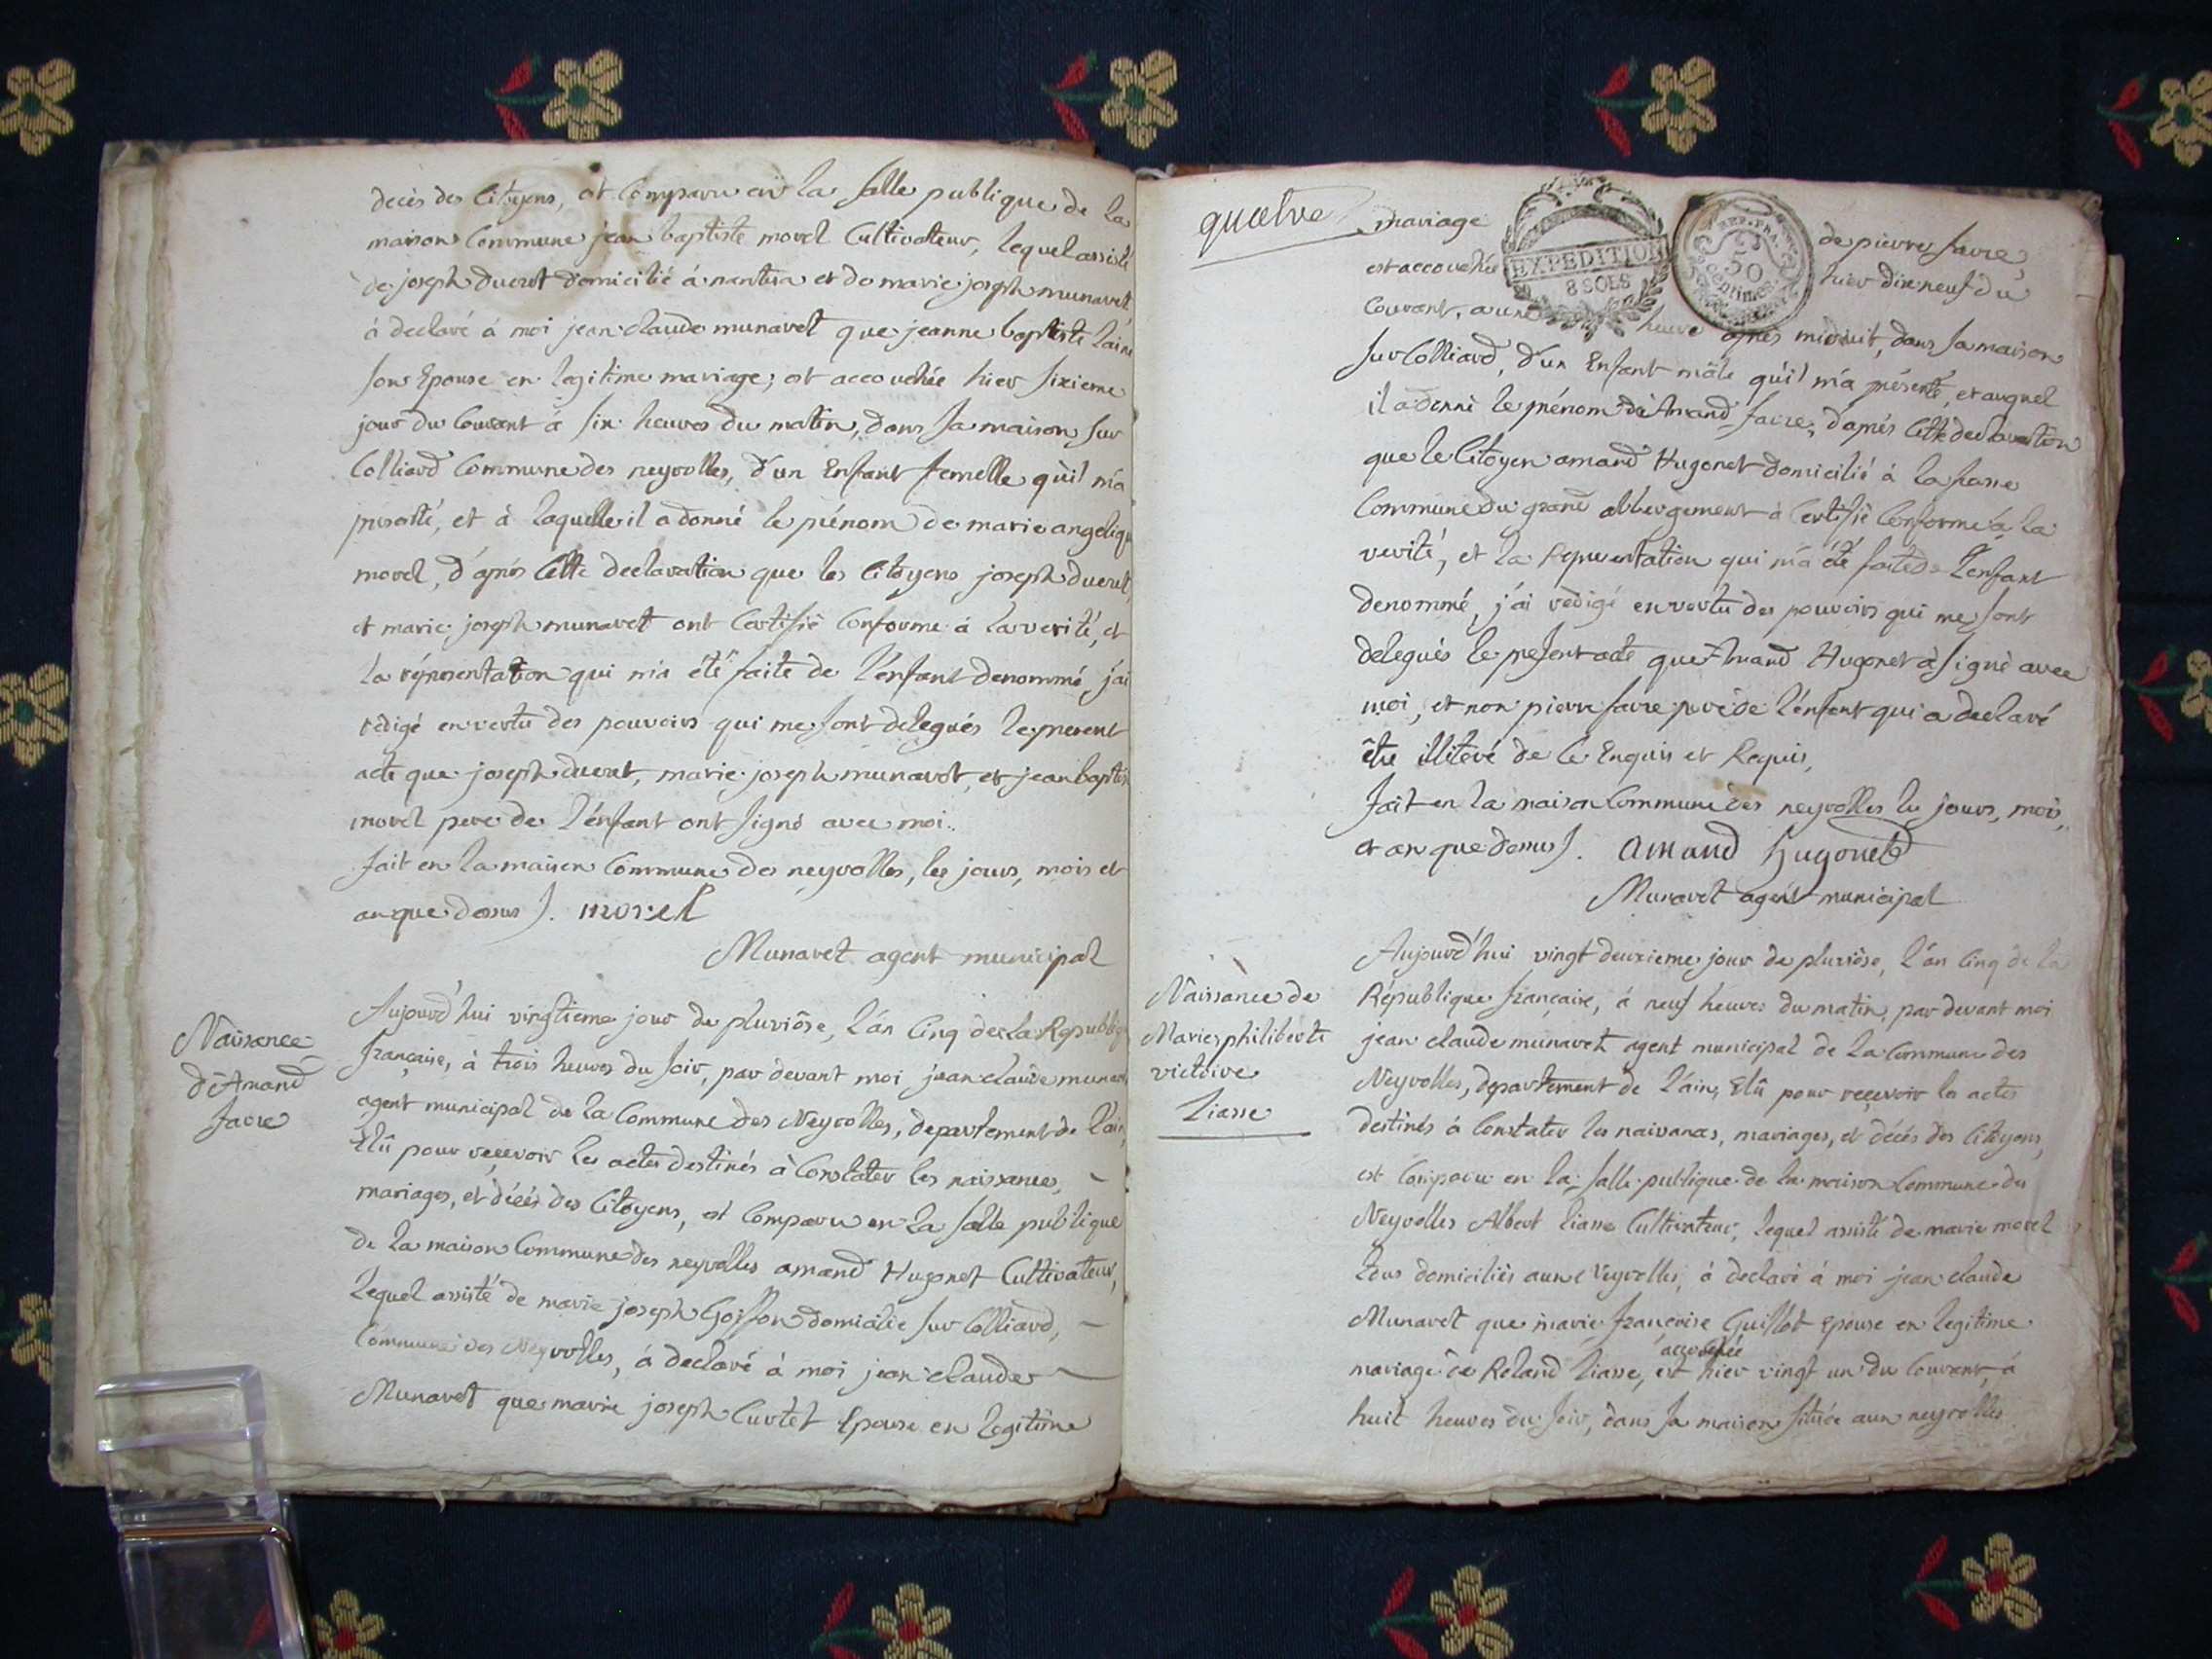 decès des Citoyens, est comparu en la salle publique de la
maison Commune jean baptiste morel Cultivateur, lequel assisté
de joseph ducret domicilié à nantua et de marie joseph munavet
à declaré à moi jean claude munavet que jeanne baptiste
son Epouse en legitime mariage, est accouchée hier sixieme
jour du Courant à six heures du matin, dans sa maison sur
Colliard Commune des neyrolles, d'un Enfant femelle qu'il m'a
presenté, et à laquelle il a donné le prénom de marie angeliq
morel, d'après Cette declaration que les Citoyens joseph ducret,
et marie joseph munavet ont Certifié Conforme à la verité, et
la représentation qui m'a été faite de l'énfant denommé j'ai
rédigé en vertu des pouvoirs qui me sont delegués le present
acte que joseph ducret, marie joseph munavet, et jean baptis
morel pere de l'énfant ont signé avec moi.
fait en la maison Commune des neyrolles, les jours, mois et
an que dessus. morel
Munavet agent municipal
Naissance
d'Amand
favre
Aujourd'hui vingtieme jour de pluviôse, l'an Cinq de la Republiq
française, à trois heures du soir, par devant moi jean claude munav
agent municipal de la Commune des Neyrolles, departement de l'ain,
Elû pour recevoir les actes destinés à Constater les naissances,
mariages, et décès des Citoyens, est Comparu en la salle publique
de la maison Commune des neyrolles amand Hugonet Cultivateur,
lequel assisté de marie joseph Goiffon domicilié sur Colliard,
Commune des Neyrolles, à declaré à moi jean claude
Munavet que marie joseph Curtet Epouse en legitime
quatre
mariage de pierre favre,
EXPEDITION
8 SOLS
REP. FRA.
50
centimes
est accouchée hier dixneuf du
Courant, a une heure après minuit, dans sa maison
sur Colliard, d'un Enfant mâle qu'il m'a présenté, et auquel
il a donné le prénom d'Amand favre, d'aprés Cette declaration
que le Citoyen amand Hugonet domicilié à
Commune du grand abbergement à Certifié Conforme à la
verité, et la Representation qui m'a été faite de l'enfant
denommé, j'ai redigé en vertu des pouvoirs qui me sont
delegués le present acte que Amand Hugonet à signé avec
moi, et non pierre favre pere de l'énfant qui a declaré
être illiteré de ce Enquis et Requis,
fait en la maison Commune des neyrolles les jours, mois,
et an que dessus. amand hugonet
Munavet agent municipal
Naissance de
Marie philiberte
victoire
Liasse
Aujourd'hui vingt deuxieme jour de pluviôse, l'an Cinq de la
République française, à neuf heures du matin, par devant moi
jean claude munavet agent municipal de la Commune des
Neyrolles, departement de l'ain, Elû pour recevoir les actes
destinés à Constater les naissances, mariages, et décès des Citoyens,
est Comparu en la salle publique de la maison Commune des
Neyrolles Albert liasse Cultivateur, lequel assisté de marie morel
tous domiciliés aux Neyrolles, à declaré à moi jean claude
Munavet que marie françoise Guillot Epouse en legitime
accouchée
mariage de Roland liasse, est hier vingt un du Courant, à
huit heures du soir, dans sa maison située aux neyrolles